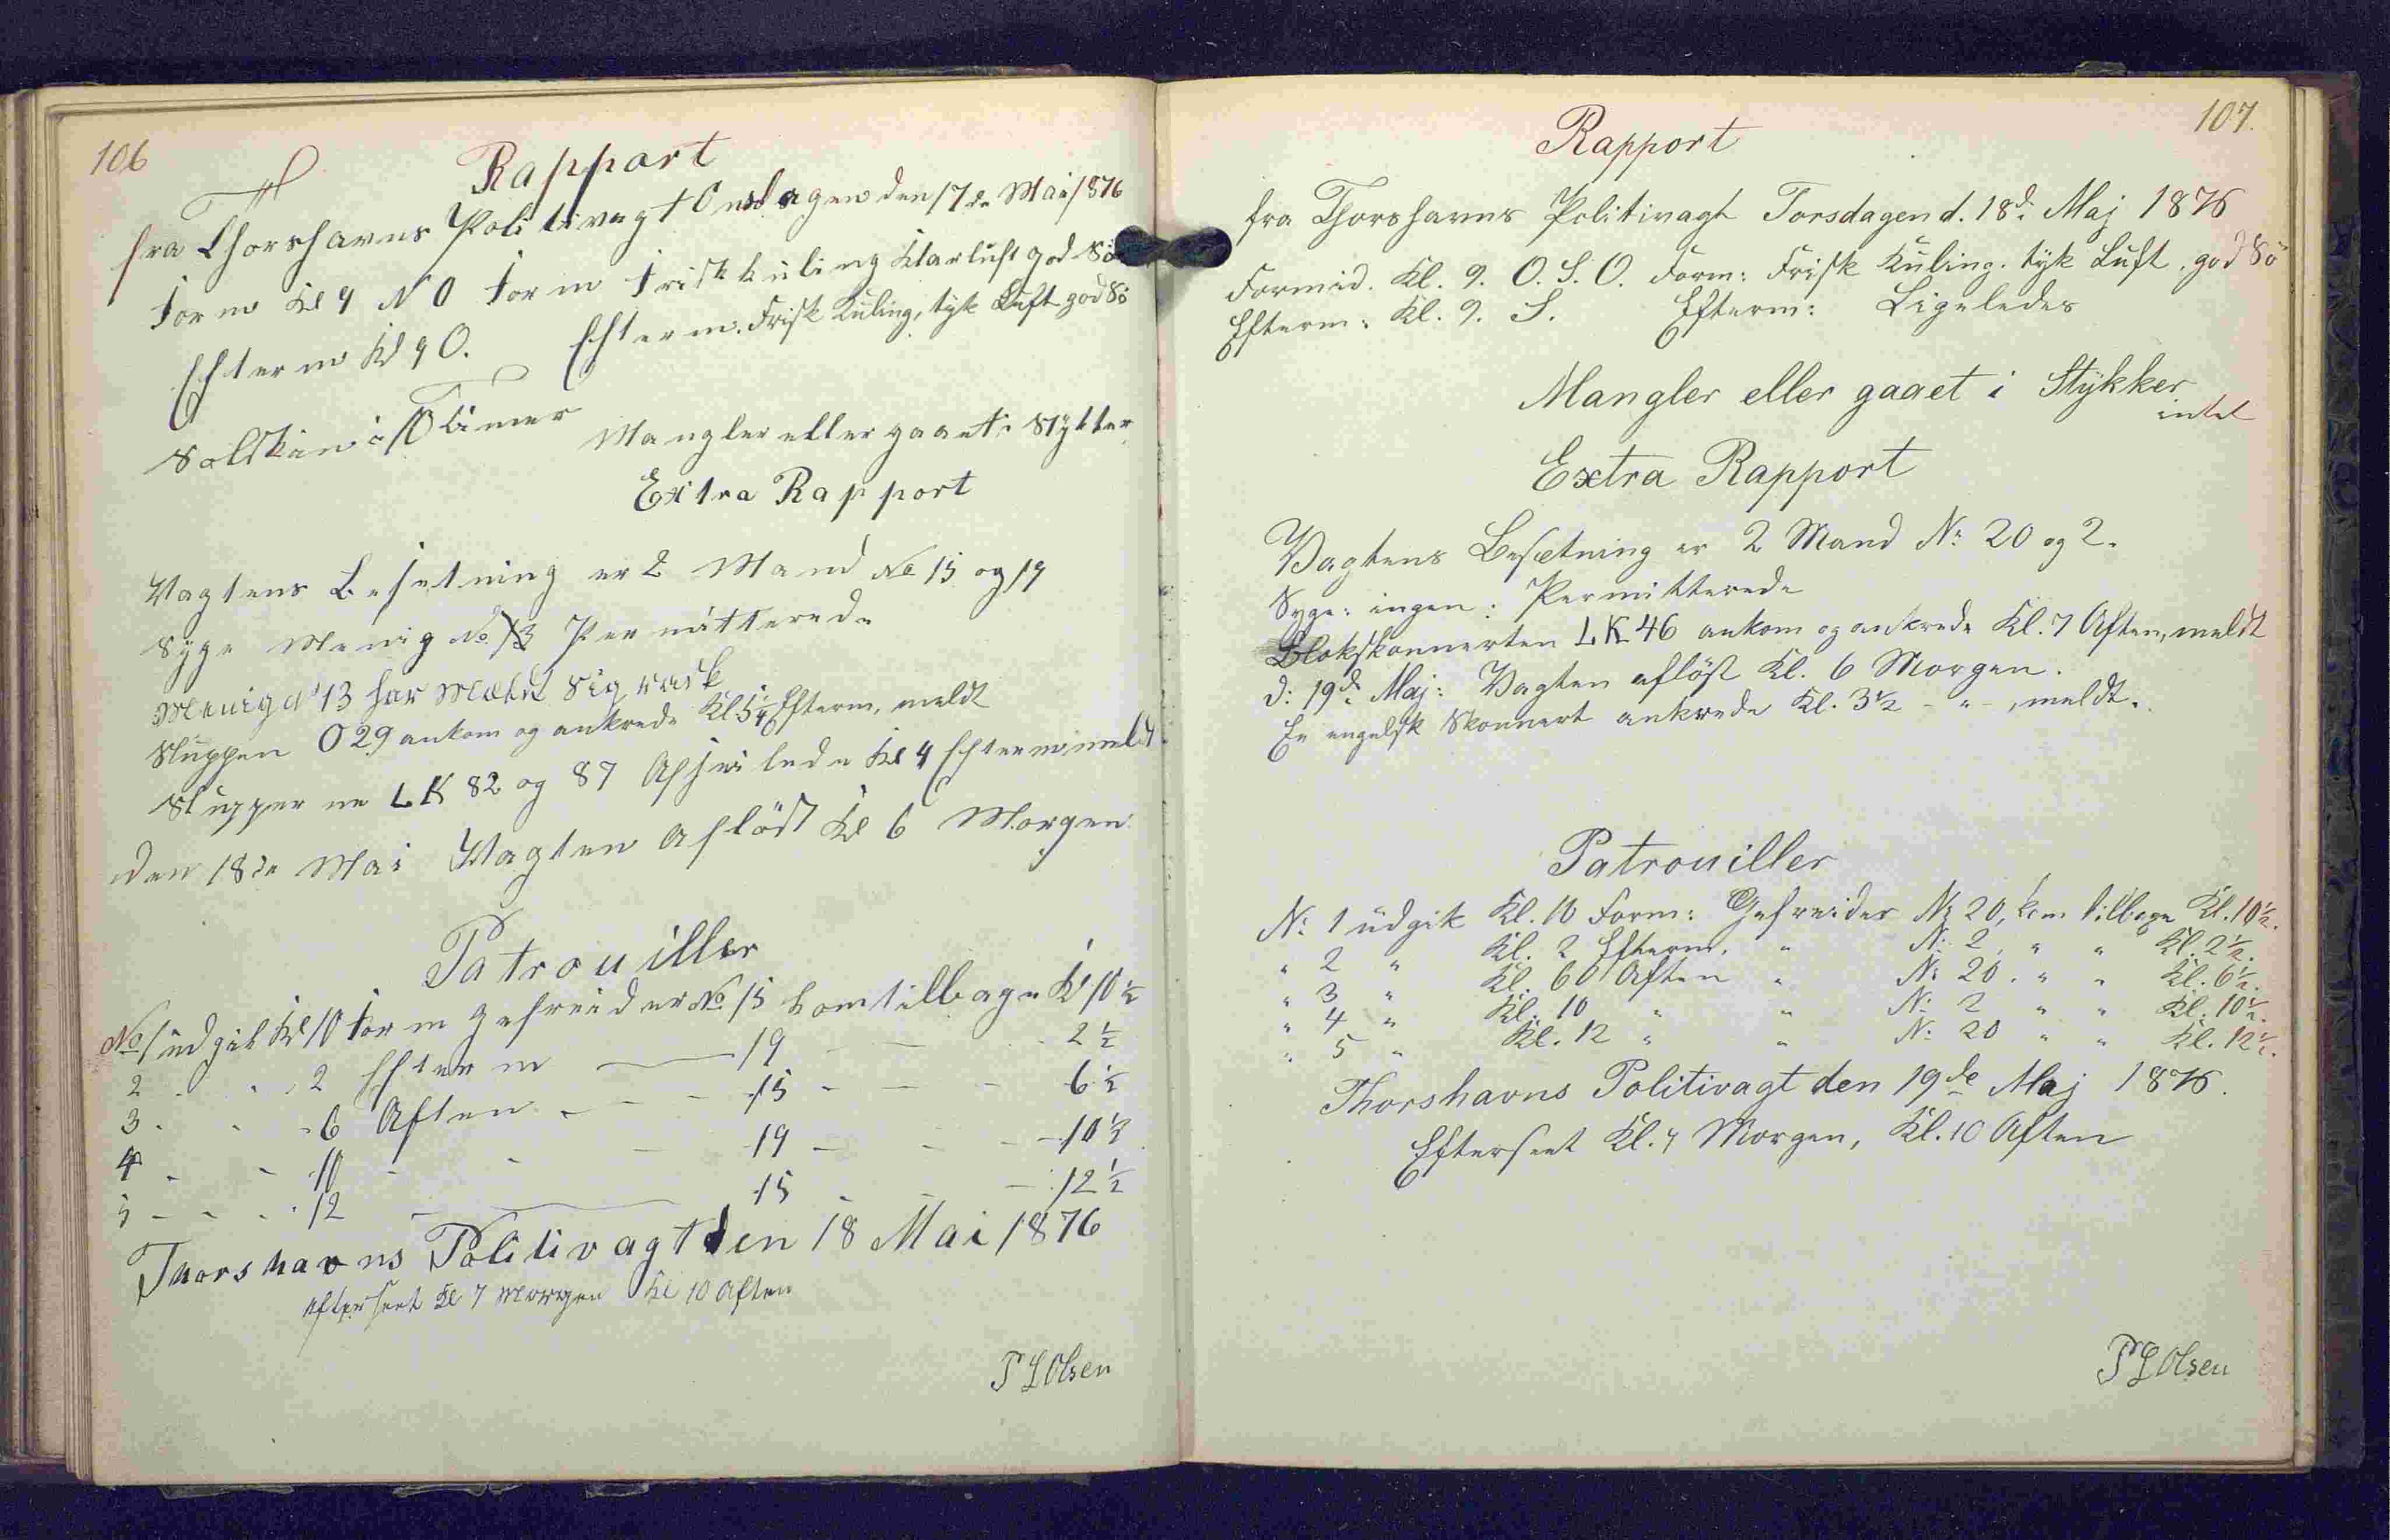 106
Rapport
fra Thorshavns Politivagt Onsdagen den 17de Mai 1876
Form Kl 9 N O Form Frisk Kuling Klar luft god Sö
Efterm Kl 9 O. Efterm. Frisk Kuling, tyk Luft god Sö
Solskin i 10 Timer
Mangler eller gaaet i Stykker
Extra Rapport
Vagtens Besetning er 2 Mand No 15 og 19
Syge Menig No 13 Permitterede
Menig No 13 har Mældt Sig rask
Sluppen O 29 ankom og ankrede Kl. 5 1/4 Efterm, meldt
Slupperne LK 82 og 87 Afseilede Kl 4 Efterm meldt
den 18de Mai Vagten Aflöst Kl 6 Morgen
Patrouiller
No 1 udgik Kl 10 Form Gefreider No 15 kom tilbage Kl 10 1/2
2 . . 2 Efterm — 19 - — - 2 1/2
3 . . - 6 Aften - - - 15 - — - 6 1/2
4 - - 10 - - — 19 — - - 10 1/2
5 - - - 12 - — 15 - — - 12 1/2
Thorshavns Politivagt den 18 Mai 1876
efterseet Kl 7 Morgen Kl 10 Aften
P L Olsen
107.
Rapport
fra Thorshavns Politivagt Torsdagen d. 18de Maj 1876
Formid. Kl. 9. O. S. O. Form: Frisk Kuling. tyk Luft. god Sö
Efterm: Kl. 9. S. Efterm: Ligeledes
Mangler eller gaaet i Stykker
intet
Extra Rapport
Vagtens Besætning er 2 Mand No 20 og 2.
Syge: ingen: Permitterede
Slokskonnerten LK 46 ankom og ankrede Kl. 7 Aften, meldt
d: 19de Maj: Vagten aflöst Kl. 6 Morgen.
En engelsk Skonnert ankrede Kl. 3 1/2 - " -, meldt.
Patrouiller
No 1 udgik Kl. 10 Form: Gefreider No 20, kom tilbage Kl. 10 1/2.
" 2 " Kl. 2 Efterm. " No 2, " " Kl. 2 1/2.
" 3 " Kl. 6 Aften " No 20. " " Kl. 6 1/2.
" 4 " Kl. 10 " " No 2 " " Kl. 10 1/2.
" 5 " Kl. 12 " " No 20 " " Kl. 12 1/2.
Thorshavns Politivagt den 19de Maj 1876.
Efterseet Kl. 7 Morgen, Kl. 10 Aften
P L Olsen